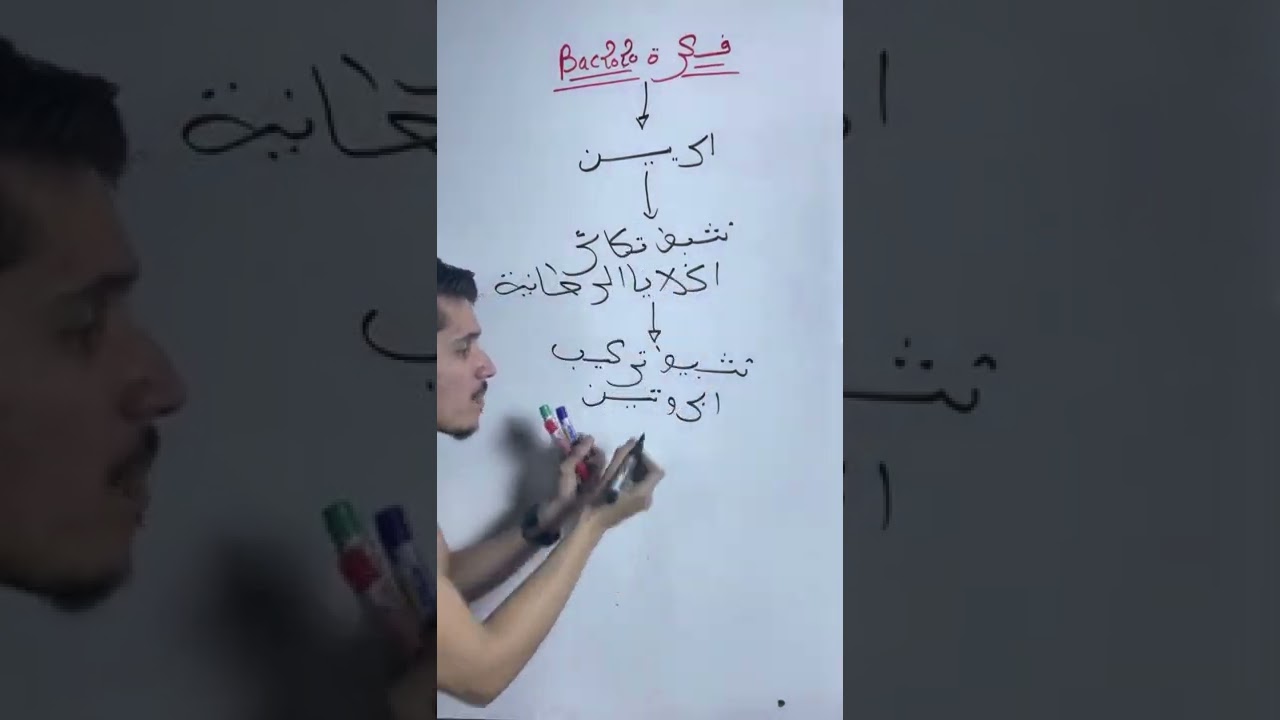 فكرة Bac2020
الريسين
تثبيط تكاثر
الخلايا السرطانية
تثبيط تركيب
البروتين